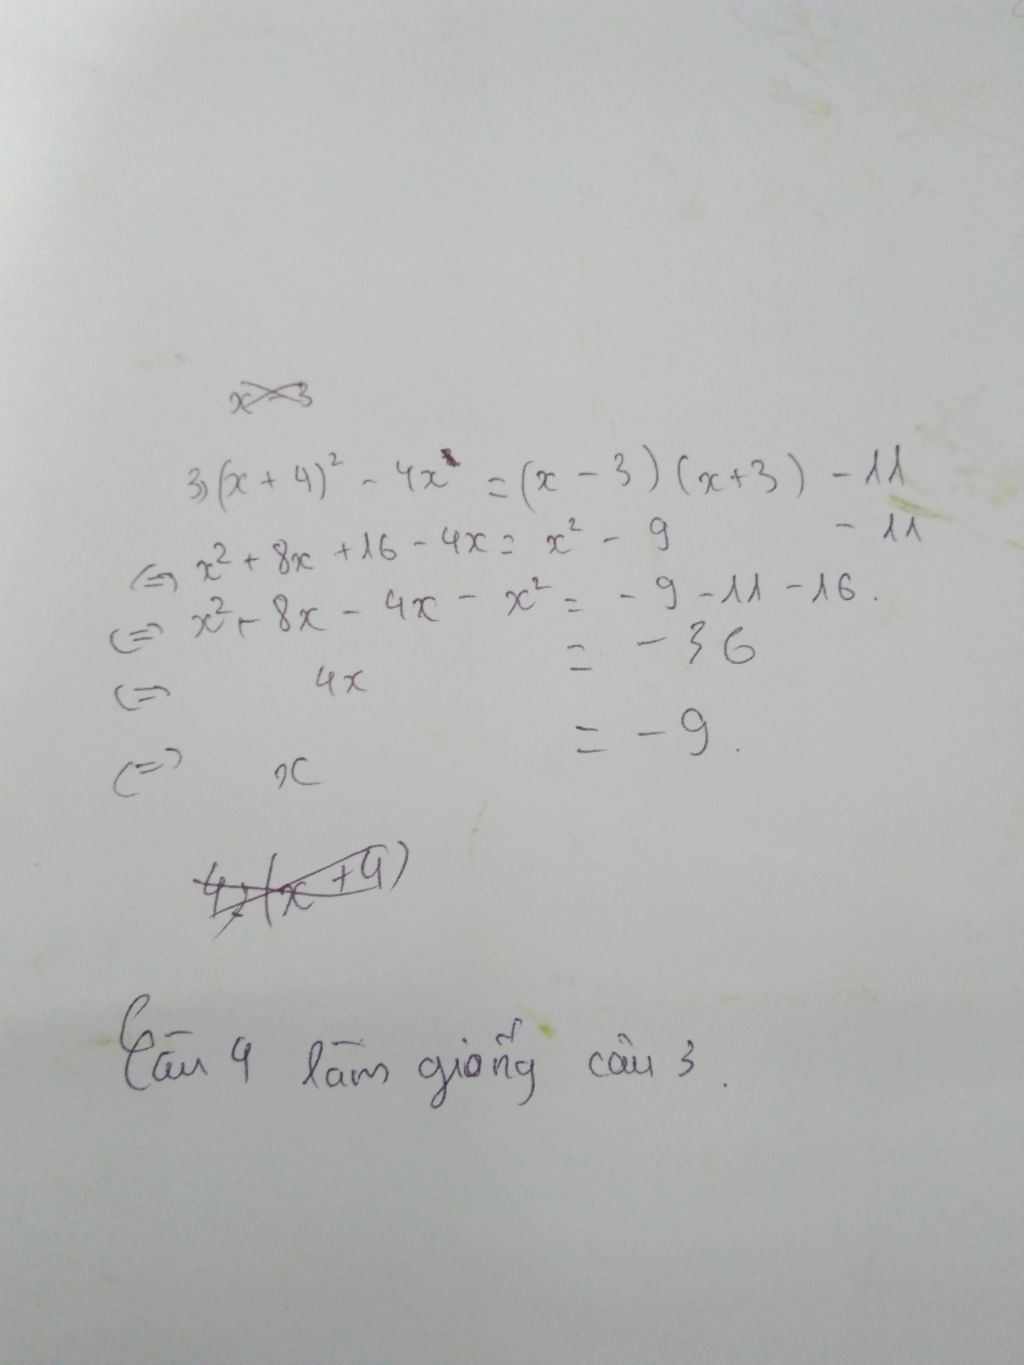 x - 3
3, (x + 4)² - 4x = (x - 3) (x+3) - 11
(=) x² + 8x + 16 - 4x = x² - 9 - 11
(=) x² + 8x - 4x - x² = - 9 - 11 - 16.
(=) 4x = - 36
(=) x = - 9.
4, (x + 4)
Câu 4 làm giống câu 3.